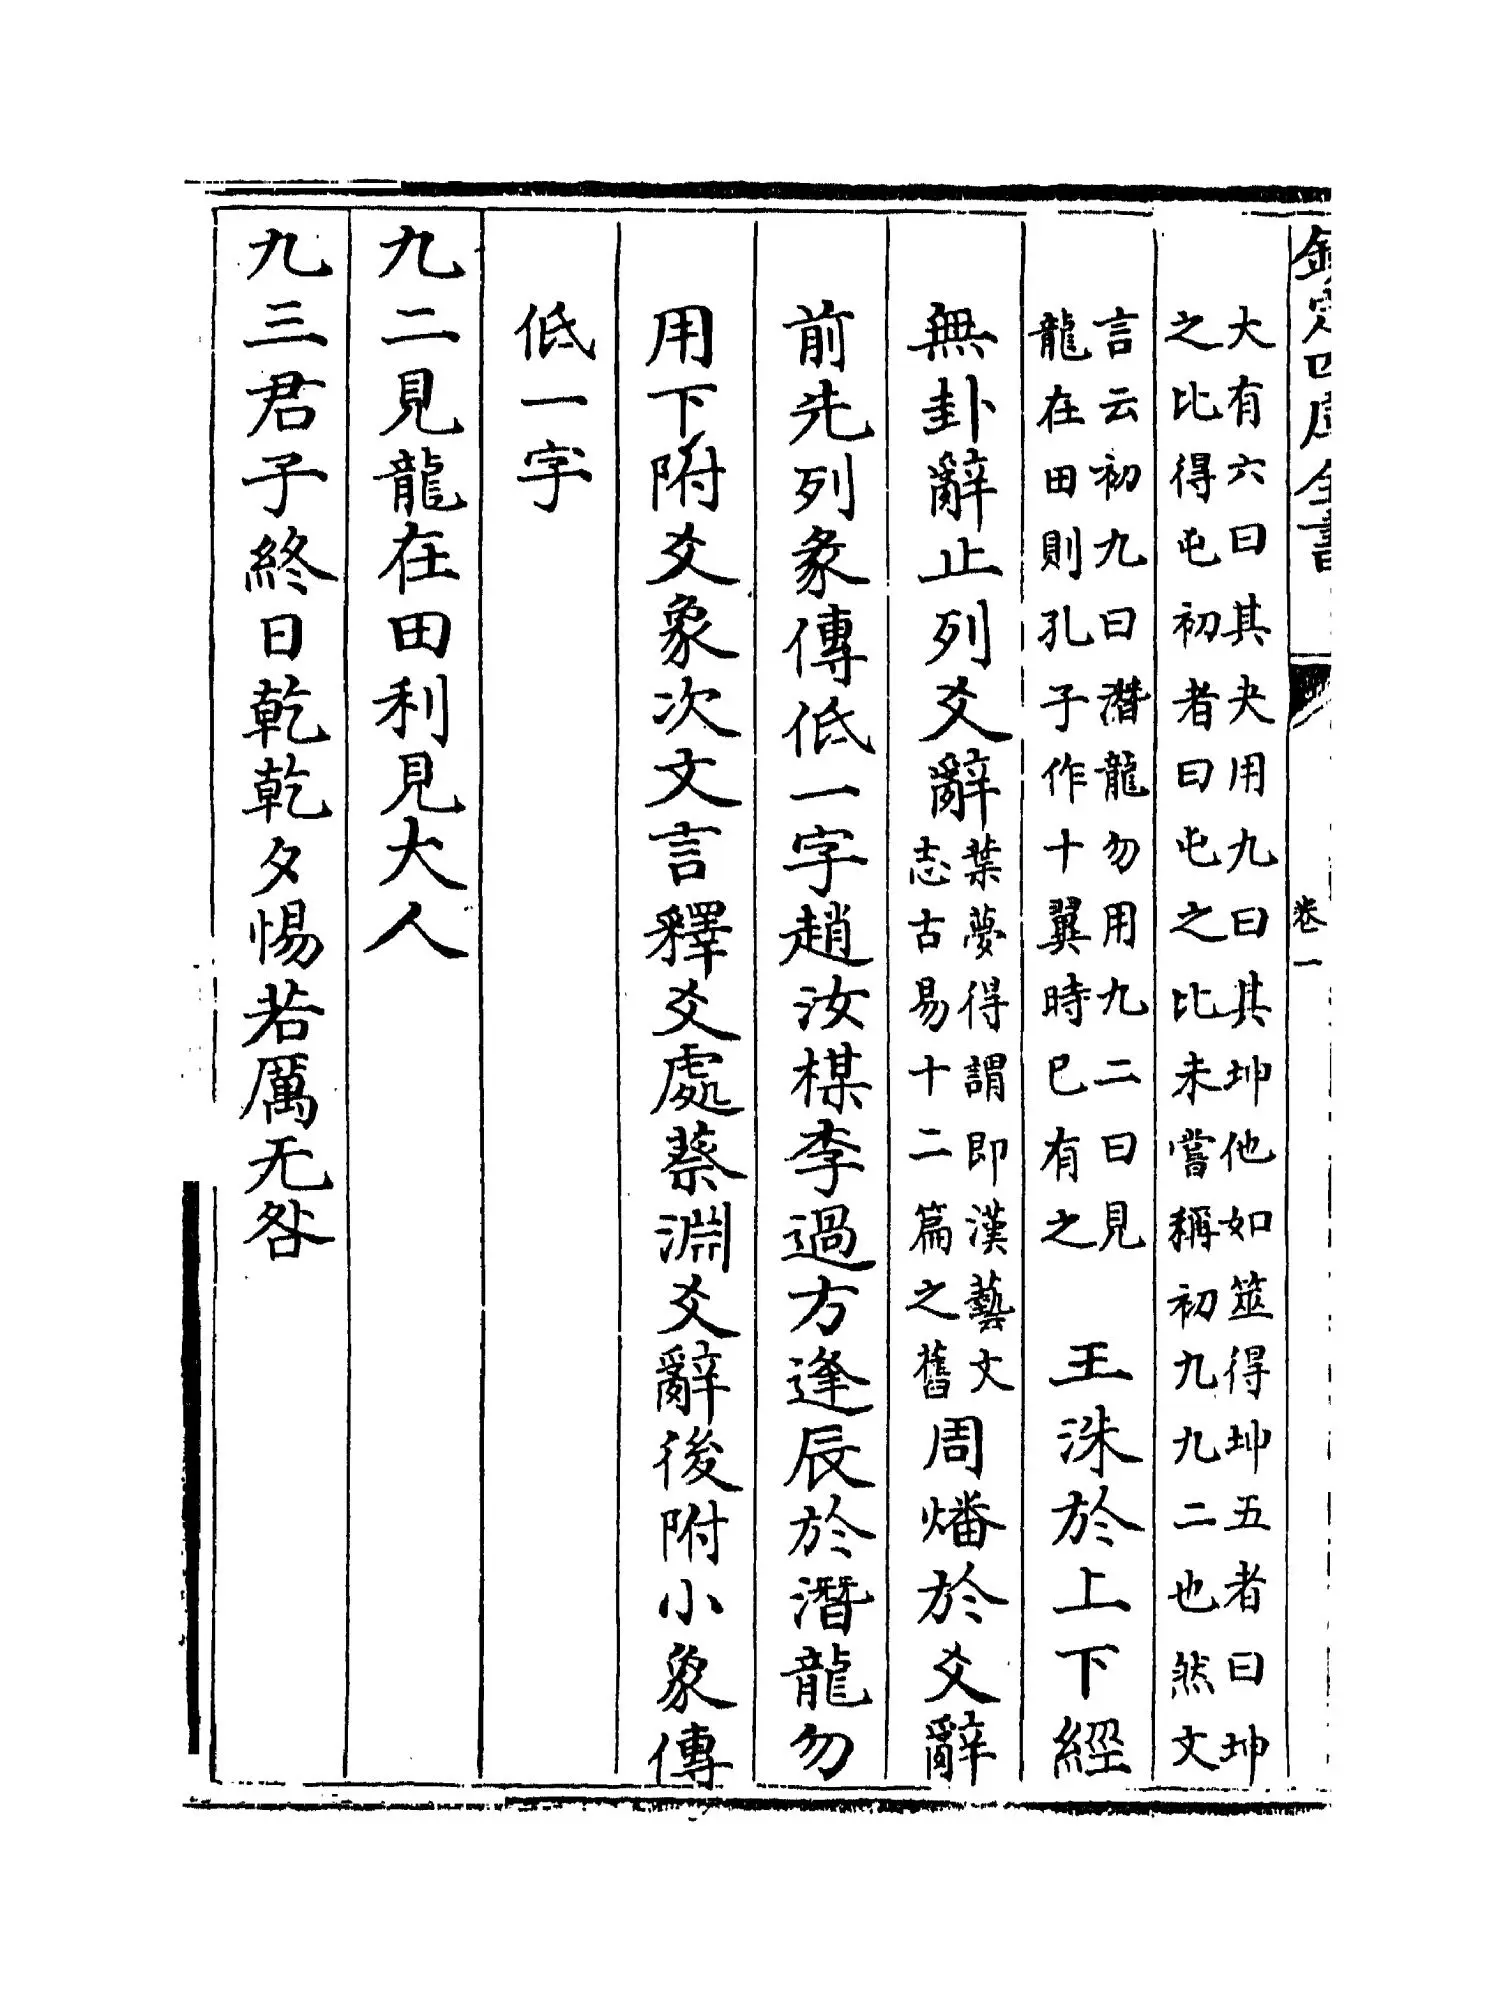 欽定四庫全書
卷一
大有六曰其夬用九曰其坤他如筮得坤五者曰坤
之比得屯初者曰屯之比未嘗稱初九九二也然文
言云初九曰潛龍勿用九二曰見
龍在田則孔子作十翼時已有之
王洙於上下經
無卦辭止列爻辭
葉夢得謂即漢藝文
志古易十二篇之舊
周燔於爻辭
前先列彖傳低一字趙汝楳李過方逢辰於潛龍勿
用下附爻象次文言釋爻處蔡淵爻辭後附小象傳
低一字
九二見龍在田利見大人
九三君子終日乾乾夕惕若厲无咎